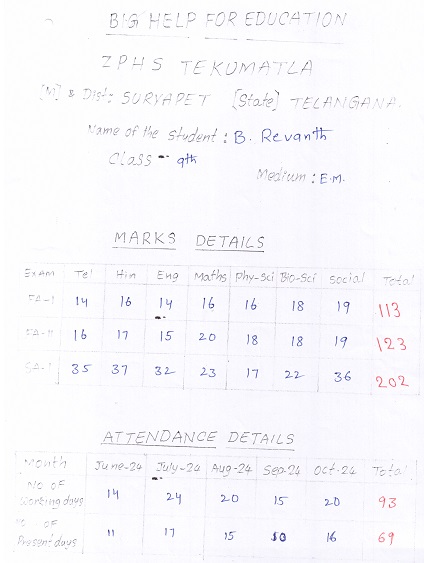 BIG HELP FOR EDUCATION
ZPHS TEKUMATLA
[M] & Dist: SURYAPET [State] TELANGANA.
Name of the student : B. Revanth
Class - 9th
Medium : E.M.
MARKS DETAILS
Exam Tel Hin Eng Maths Phy-Sci Bio-Sci Social Total
FA-I 14 16 14 16 16 18 19 113
FA-II 16 17 15 20 18 18 19 123
SA-I 35 37 32 23 17 22 36 202
ATTENDANCE DETAILS
Month June-24 July-24 Aug-24 Sep-24 Oct-24 Total
No of
Working days 14 24 20 15 20 93
No of
Present days 11 17 15 10 16 69